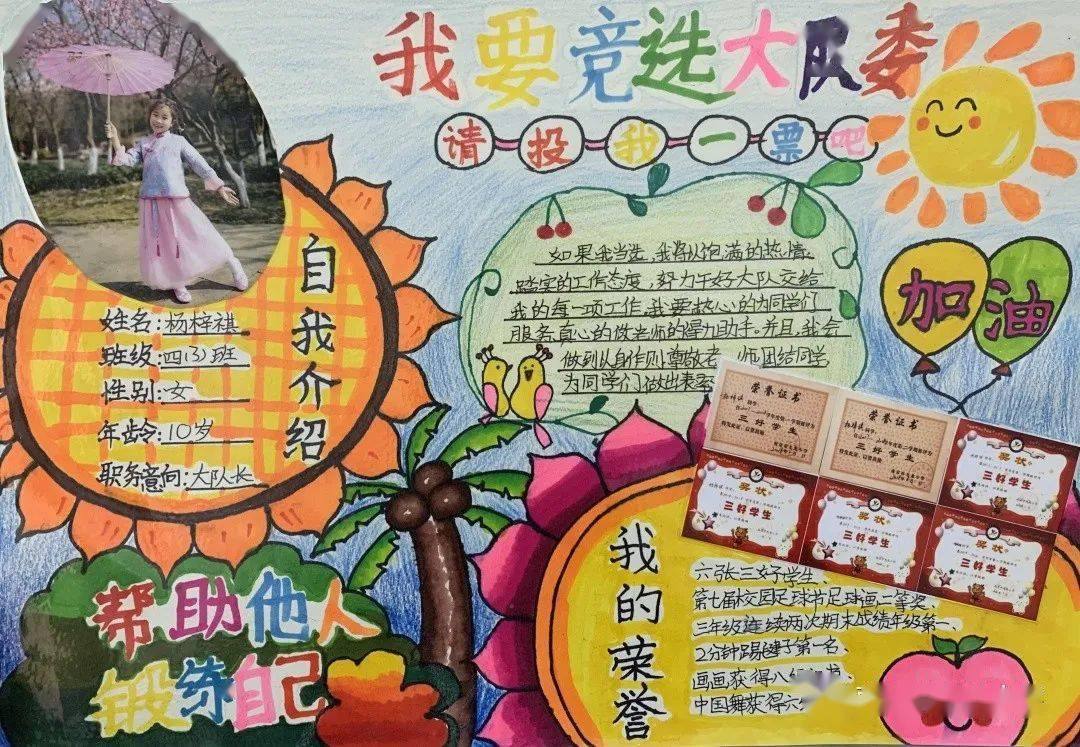 我要竞选大队委
请投我一票吧
自我介绍
姓名:杨梓祺
班级:四(3)班
性别:女
年龄:10岁
职务意向:大队长
如果我当选,我将以饱满的热情、
踏实的工作态度,努力干好大队交给
我的每一项工作,我要热心的为同学们
服务真心的做老师的得力助手,并且,我会
做到以身作则尊敬老师团结同学
为同学们做出表率
加油
荣誉证书
三好学生
荣誉证书
三好学生
奖状
三好学生
奖状
三好学生
奖状
三好学生
奖状
三好学生
我的荣誉
六张三好学生、
第七届校园足球节足球画二等奖、
三年级连续两次期末成绩年级第一、
2分钟踢毽子第一名、
画画获得八级
中国舞获得六
帮助他人
锻炼自己